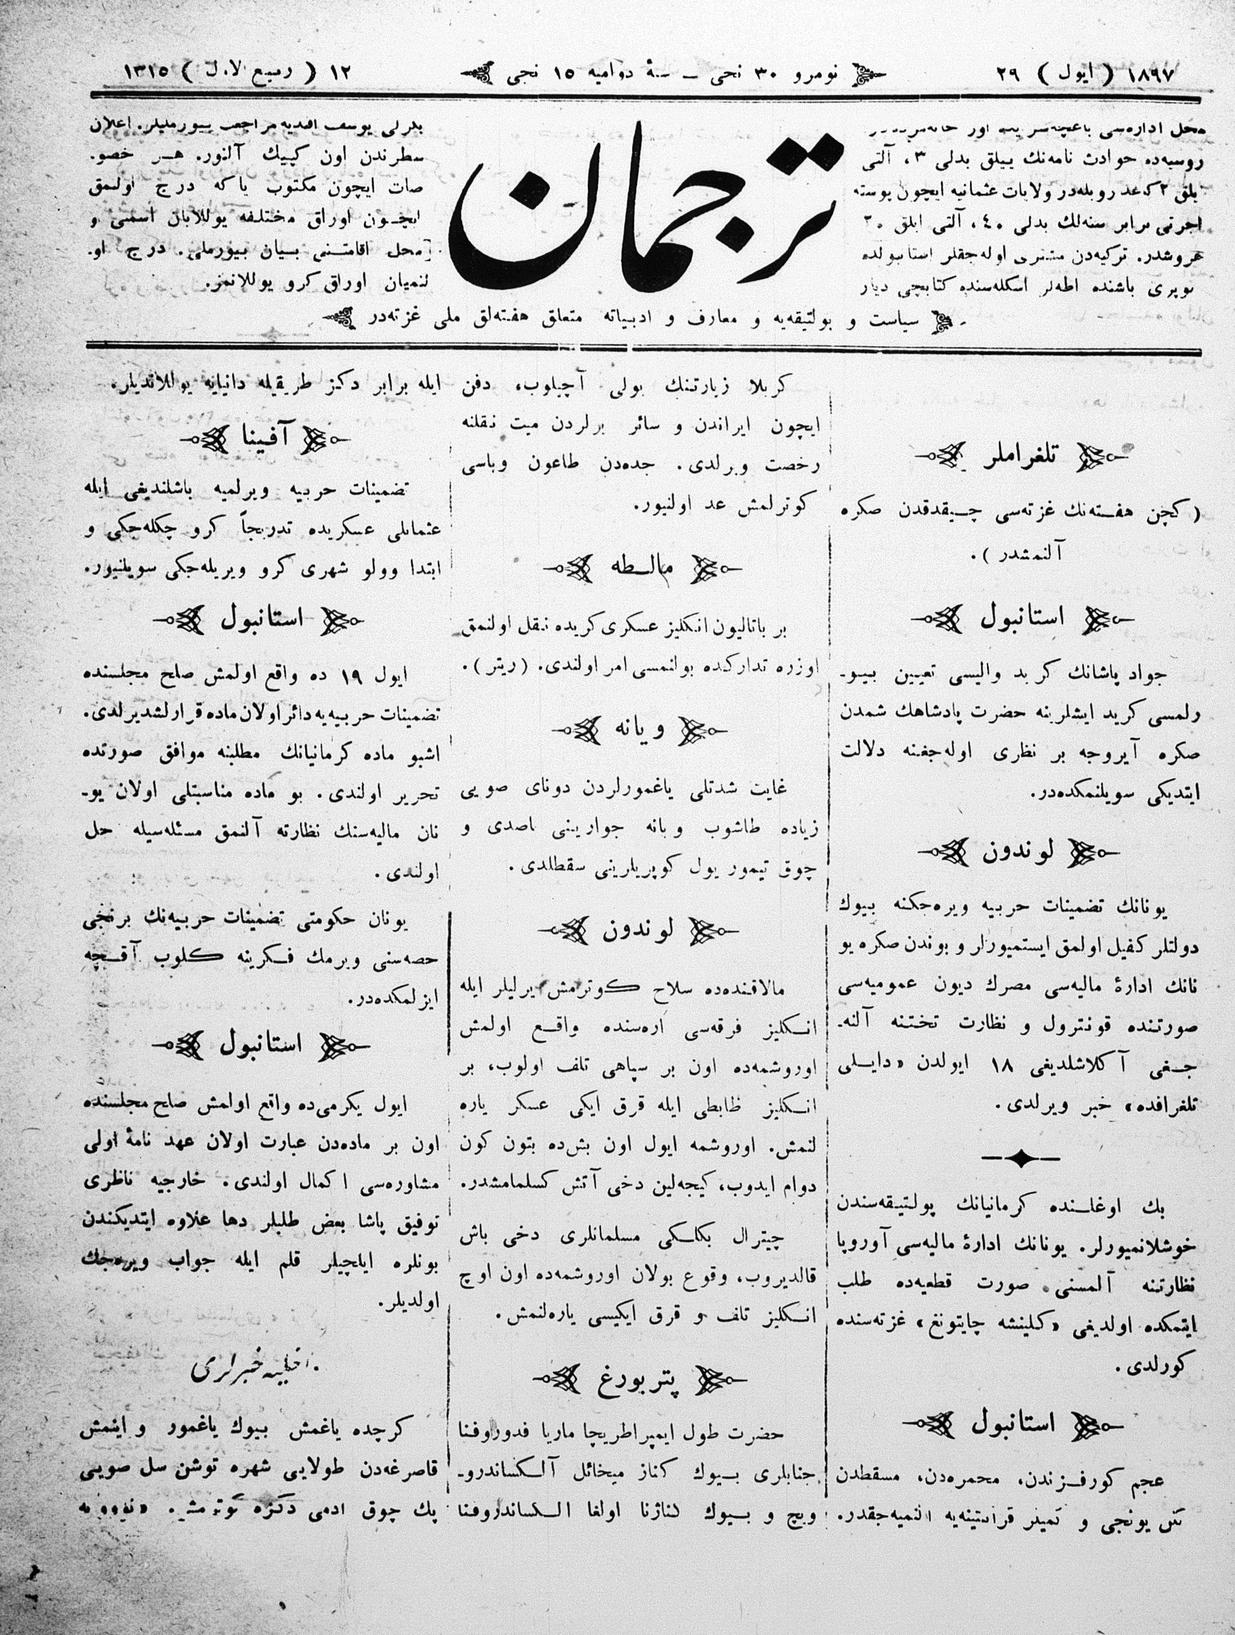 ١٨٩٧ ( ايول ) ٢٩
نومرو ٣٠ نجى ــ سنۀ دواميه ١٥ نجى
١٢ ( ربيع الاول ) ١٣١٥
محل اداره‌سى باغچه‌سرايده اور خانه‌سيدر
روسيه‌ده حوادث نامه‌نك ييللق بدلى ٣، آلتى
ايلق ٢ كاغد روبله‌در ولايات عثمانيه ايچون پوسته
اجرتى برابر سنه‌لك بدلى ٤٠، آلتى ايلق ٢٠
غروشدر. تركيه‌دن مشترى اوله‌جقلر استانبولده
كوپرى باشنده اطه‌لر اسكله‌سنده كتابچى ديار
ترجمان
بكرلى يوسف افنديه مراجعت بيورمليلر. اعلان
سطرندن اون كپيك آلنور. هــر خصو.
صات ايچون مكتوب ياكه درج اولنمق
ايچــون اوراق مختلفه يوللايان اسمى و
محل اقامتــنى بيــان بيورملى. درج او.
لنميان اوراق كرو يوللانمز.
سياست و بولتيقه‌يه و معارف و ادبياته متعلق هفته‌لق ملى غزته‌در
تلغراملر
( كچن هفــته‌نك غزته‌سى چــيقدقدن صكره
آلنمشدر ).
استانبول
جواد پاشانك كريد واليسى تعيين بيــو-
رلمسى كريد ايشلرينه حضرت پادشاهك شمدن
صكره آيروجه بر نظرى اوله‌جغنه دلالت
ايتديكى سويلنمكده‌در.
لوندون
يونانك تضمينات حربيه ويره‌جكنه بيوك
دولتلر كفيل اولمق ايستميورلر و بوندن صكره يو
نانك ادارۀ ماليه‌سى مصرك ديون عموميه‌سى
صورتنده قونترول و نظارت تختنه آلنه-
جــغى آكلاشلديغى ١٨ ايولدن «دايــلى
تلغرافده» خبر ويرلدى.
بك اوغلــنده كرمانيانك پولتيــقه‌سندن
خوشلانميورلر. يونانك ادارۀ ماليه‌سى آوروپا
نظارتنه آلمسنى صورت قطعيه‌ده طلب
ايتمكده اولديغى «كلينشه چايتونغ» غزته‌سنده
كورلدى.
استانبول
عجم كورفــزندن، محمره‌دن، مسقطدن
كلن يونجى و كميلر قرانتينه‌يه النميه‌جقدر.
كربلا زيارتنك يولى آچيلوب، دفن
ايچون ايراندن و سائر يرلردن ميت نقلنه
رخصت ويرلدى. جده‌دن طاعون وباسى
كوترلمش عد اولنيور.
مالــطه
بر باتاليون انكليز عسكرى كريده نقل اولنمق
اوزره تداركده بولنمسى امر اولندى. (ريتر).
ويانه
غايت شدتلى ياغمورلردن دوناى صويى
زياده طاشوب ويانه جوارينى باصدى و
چوق تيمور يول كوپريلرينى سقطلدى.
لوندون
مالاقنده‌ده سلاح كــوترمش يرليلر ايله
انــكليز فرقه‌سى اره‌سنده واقــع اولمش
اوروشمه‌ده اون بر سپاهى تلف اولوب، بر
انــكليز ظابطى ايله قرق ايكى عسكر ياره
لنمش. اوروشمه ايول اون بش‌ده بتون كون
دوام ايدوب، كيجه‌لين دخى آتش كسلمامشدر.
چيترال بكلــكى مسلمانلرى دخى باش
قالديروب، وقوع بولان اوروشمه‌ده اون اوچ
انــكليز تلف و قرق ايكيسى ياره‌لنمش.
پتربورغ
حضرت طول ايمپراطريچا ماريا فدوروفنا
جنابلرى بيــوك كناز ميخائل آلــكساندرو-
ويچ و بيــوك كنازنا اولغا الــكساندروفنا
ايله برابر دكز طريقيله دانيايه يوللانديلر.
آفــينا
تضمينات حربيه ويرلميه باشلنديغى ايله
عثمانلى عسكريده تدريجاً كرو چكله‌جكى و
ابتدا وولو شهرى كرو ويريله‌جكى سويلنيور.
استانبول
ايول ١٩ ده واقع اولمش صلح مجلسنده
تضمينات حربيه‌يه دائر اولان ماده قرارلشديرلدى.
اشبو ماده كرمانيانك مطلبنه موافق صورتده
تحرير اولندى. بو ماده مناسبتلى اولان يو-
نان ماليه‌سنك نظارته آلنمق مسئله‌سيله حل
اولندى.
يونان حكومتى تضمينات حربيه‌نك برنجى
حصه‌سنى ويرمك فــكرينه كــلوب آقــچه
ايزلمكده‌در.
استانبول
ايول يكرمى‌ده واقع اولمش صلح مجلسنده
اون بر ماده‌دن عبارت اولان عهد نامۀ اولى
مشاوره‌سى اكمال اولندى. خارجيه ناظرى
توفيق پاشا بعض طلبلر دها علاوه ايتديكندن
بونلره ايلچيلر قلم ايله جواب ويره‌جك
اولديلر.
داخليه خبرلرى
كرچده ياغمش بيوك ياغمور و ايتمش
قاصرغه‌دن طولايى شهره توشن سل صويى
پك چوق ادمى دكزه كوترمش.